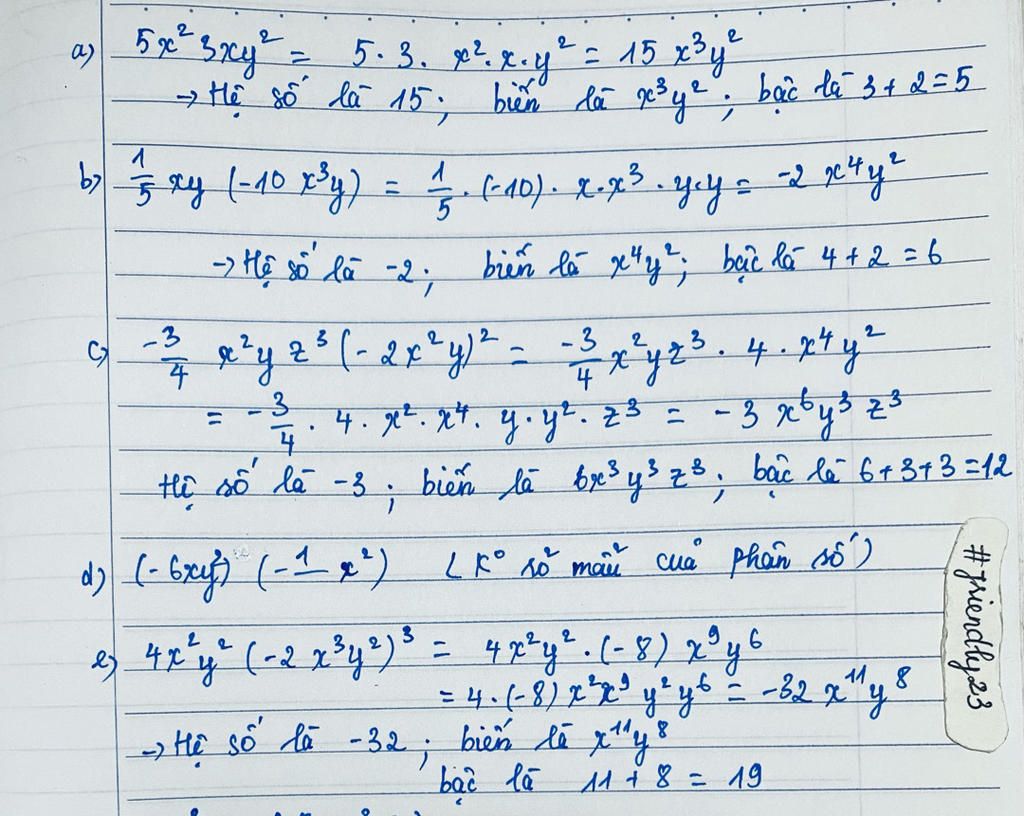 a) 5x² 3xy² = 5 · 3 · x² · x · y² = 15 x³y²
→ Hệ số là 15; biến là x³y²; bậc là 3 + 2 = 5
b) 1/5 xy (-10 x³y) = 1/5 · (-10) · x · x³ · y · y = -2 x⁴y²
→ Hệ số là -2; biến là x⁴y²; bậc là 4 + 2 = 6
c) -3/4 x²y z³ (-2x²y)² = -3/4 x²yz³ · 4 · x⁴y²
= -3/4 · 4 · x² · x⁴ · y · y² · z³ = -3 x⁶y³ z³
Hệ số là -3; biến là 6x³y³z³; bậc là 6+3+3=12
d) (-6xy²) (-1/ x²) (K° số mẫu của phân số)
e) 4x²y² (-2 x³y²)³ = 4x²y² · (-8) x⁹y⁶
= 4 · (-8) x²x⁹ y²y⁶ = -32 x¹¹y⁸
→ Hệ số là -32; biến là x¹¹y⁸
bậc là 11 + 8 = 19
#friendly23